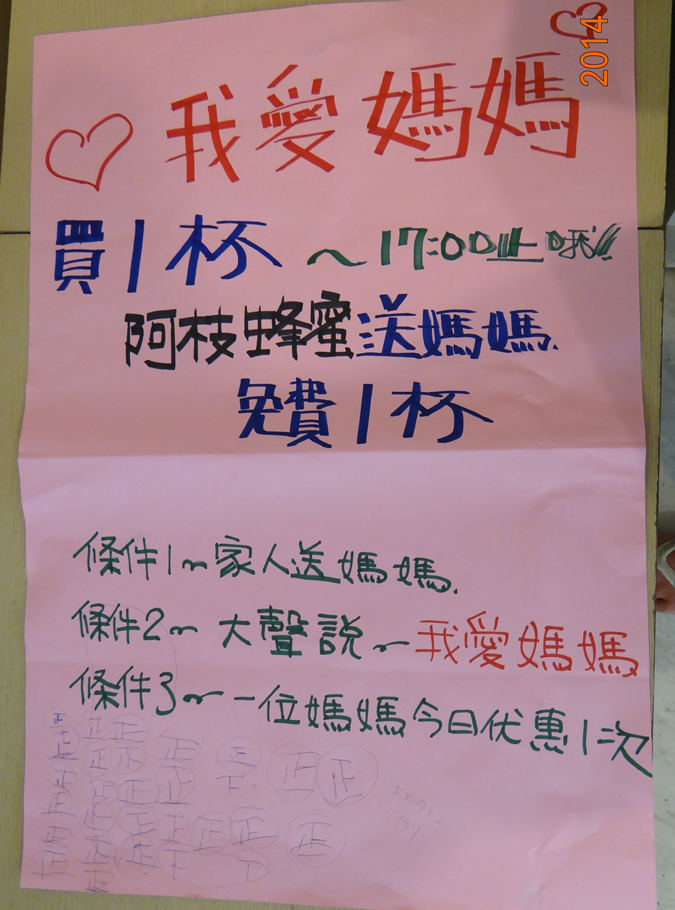 2014
我愛媽媽
買1杯~17:00止哦!!
阿枝蜂蜜送媽媽.
免費1杯
條件1~家人送媽媽.
條件2~大聲說~我愛媽媽
條件3~一位媽媽今日优惠1次